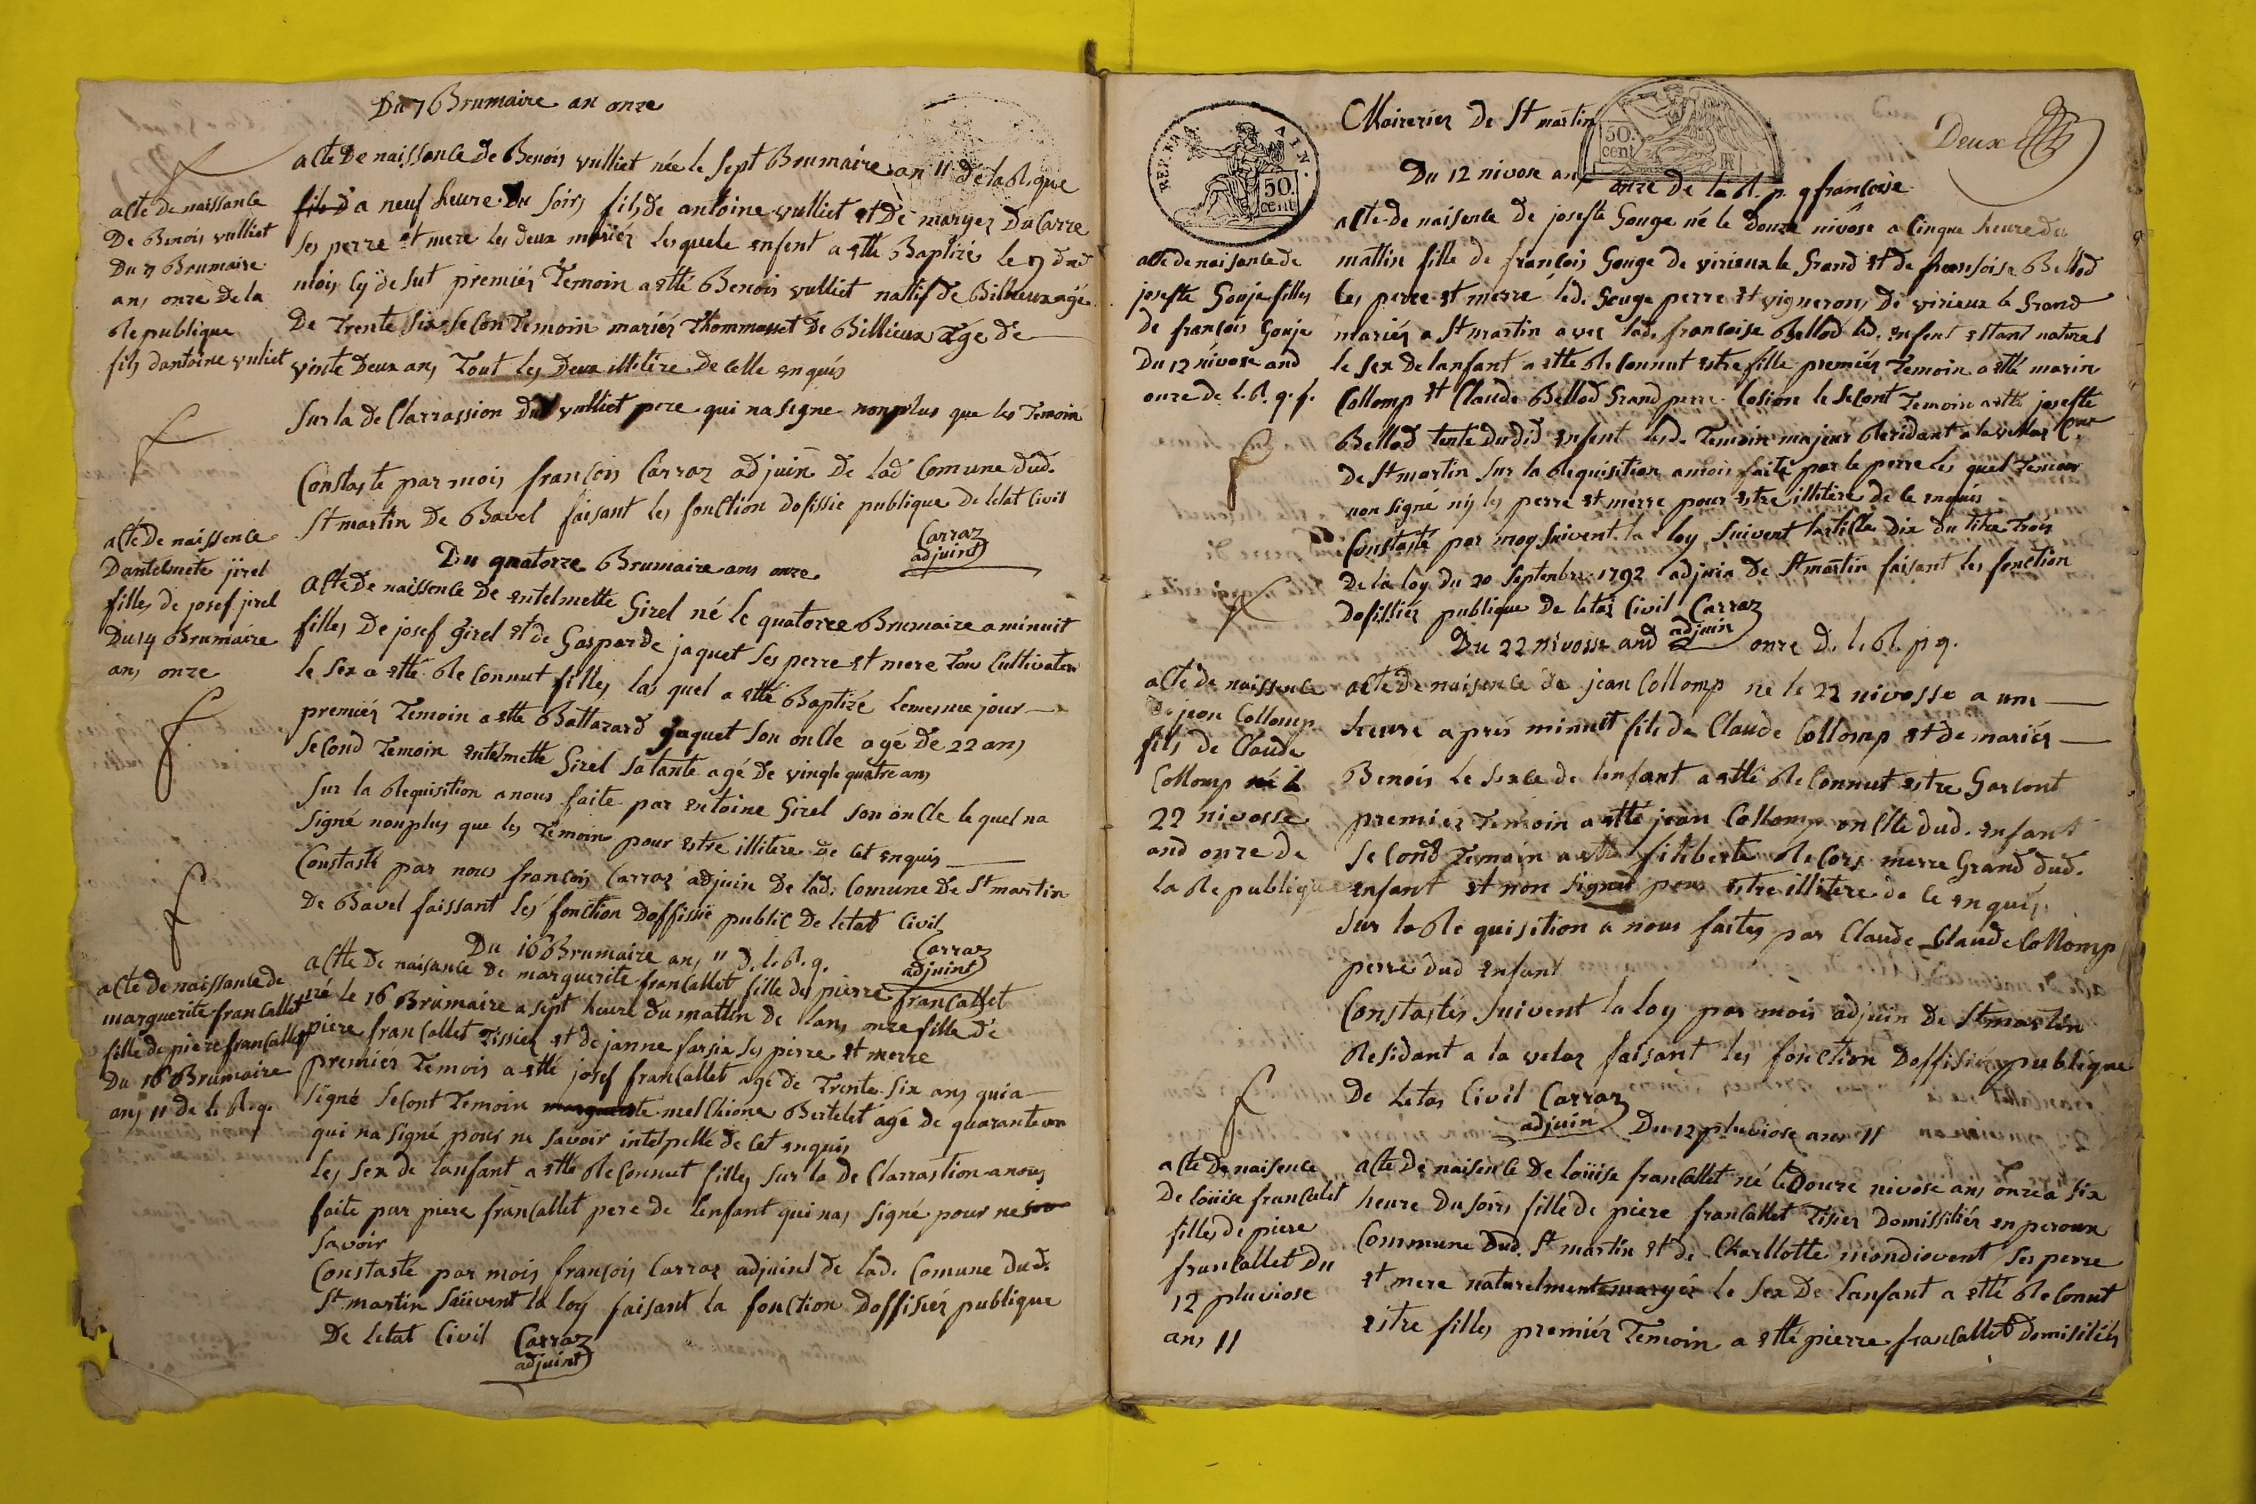 Du 7 Brumaire an onze
acte de naissance
De Benois vulliet
Du 7 Brumaire
ans onze de la
Republique
fils dantoine vuliet
acte De naissance de Benois vulliet née le sept Brumaire an 11 de la R. que
fils d a neuf heure Du soirs fils de antoine vulliet et de margez Du Carre
ses perre et mere les deux mariér lesquele enfent a etté Baptizé le 9 dud
mois Cÿ de sut premiér Temoin a etté Benois vulliet nattif de Billieux agé
De Trente six secon Temoin mariér Thommasset De Billieux agé de
vinte Deux ans Tout les Deux illitére De celle enquis
sur la de Clarrassion Du vulliet pere qui na signe nonplus que les Temoin
Constaste par mois françois Carraz adjuin de lad Comune dud.
St martin De Bavel faisant les fonction dofissie publique De letat Civil
Carraz
adjuint
acte de naissence
Dantelmete jirel
filles de josef jirel
Du 14 Brumaire
ans onze
Du quatorze Brumaire ans onze
Acte De naissence De entelmette Girel né le quatorze Brumaire a minuit
filles De josef Girel et de Gasparde jaquet ses perre et mere Tous Cultivaten
le sex a etté Reconnut filles las quel a etté Baptizé lemesme jour
premiér Temoin a etté Baltazard Jaquet son oncle agé de 22 ans
second Temoin entelmette Girel sa tante agé de vingle quatre ans
sur la Requisition a nous faite par entoine Girel son oncle le quel na
signé nonplus que les Temoin pour estre illitere de Cet enquis
Constasté par nous françois Carraz adjuin De lad. Comune De St martin
De Bavel faissant les fonction Doffissie public De letat Civil
Carraz
adjuint
acte De naissance de
marguerite francallet
fille de piere francallet
Du 16 Brumaire
ans 11 De l. R. q.
Du 16 Brumaire ans 11 d. l. R. q.
actte De naisance De marguerite francallet fille de pierre francallet
né le 16 Brumaire a sept heure du mattin de lans onze fille de
piere francallet Tissier et de janne farsix ses pirre et merre
premier Temoin a etté josef francallet agé de Trente six ans qui a
signé second Temoin marguerite melchione Bertelet agé de quarante un
qui na signé pour ne savoir intelpellé de Cet enquis
les sex de lanfant a etté Reconnut filles sur la de Clarrastion a nous
faite par piere francallet pere de lenfant qui nas signé pour ne sav
savoir
Constasté par mois françois Carraz adjuint de lad. Comune Dud.
St martin suivent la loy faisant la fonction Doffisiér publique
De letat Civil Carraz
adjuint
Mairerier De St martin
Deux
REP. FRA. AIN.
50. cent
50. cent
Du 12 nivose an onze De la R. p. q françoise
acte de naisance de
josefte Gouje filles
de françois Gouje
Du 12 nivose and
onze de l. R. q. f.
acte de naisence De josefte Gouge né le Douze nivose a Cinque heure du
mattin fille de françois Gouge De virieux le Grand et de fransoise Bellod
les perre et merre led. Gouge perre et vignerons De virieux le Grand
mariér a St martin avec lad. francoise Bellod led. enfent ettant naturel
le sex De lanfant a etté Reconnut estre fille premiér Temoin a etté marin
Collomp et Claude Bellod Grand perre le second Temoin a etté josefte
Bellod tente Dudid enfent lesd. Temoin majeur Residant a la velas Cne
De St martin sur la Requisition a mois faite par le perre les quel Temoin
non signé nis les perre et merre pour estre illitére de le enquis
Constasté par moy suivent la loy suivent lartille Dix du titre Trois
De la loy du 20 septembre 1792 adjuin De St martin faisant les fonction
Dofissiér publique De letas Civil Carraz
adjuin
Du 22 nivosse and onze D. l. R. p q.
acte De naissence
De jean Collomp
fils de Claude
Collomp né le
22 nivosse
and onze de
la Republique
acte De naisence de jean Collomp né le 22 nivosse a une
heure aprés minuit fils De Claude Collomp et de mariér
Benois le sexe de lenfant a etté Reconnut estre Garcont
premiér Temoin a etté jean Collomp oncle dud. enfant
second Temoin a etté filiberte Recors merre Grand dud.
enfant et non signé pour estre illitere de le enquis
sur la Re quisition a nous faites par Claude Claude Collomp
perre dud enfant
Constastés suivent la loy par mois adjuin De St martin
Residant a la velaz faisant les fonction Doffisiér publique
De letas Civil Carraz
adjuin
Du 12 pluviose ans 11
acte De naisence
De loüise francalet
filles de piere
francallet Du
12 pluviose
ans 11
acte De naisence De loüise francallet né le Douze nivose ans onze a six
heure Du soirs fille De piere francallet Tisier Domissiliér en peroux
Commune Dud. St martin et de Charllotte mondiovent ses perre
et mere naturelment margér le sex De lanfant a etté Reconut
estre filles premiér Temoin a etté pierre francallet Domisiliés